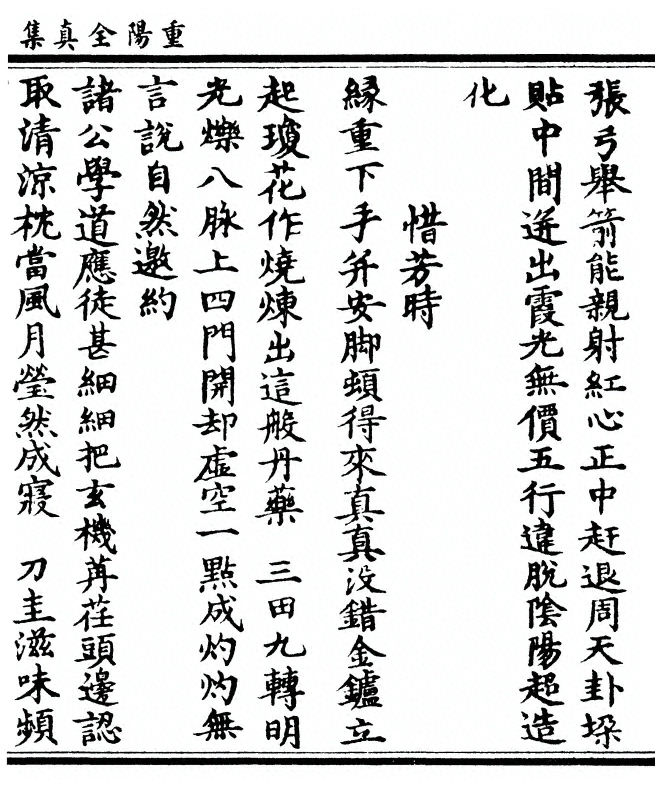 重陽全真集
張弓舉箭能親射紅心正中赶退周天卦垜
貼中間迸出霞光無價五行違脫陰陽超造
化
惜芳時
緣重下手并安脚頓得來真真没錯金鑪立
起瓊花作燒煉出這般丹藥　三田九轉明
光爍八脉上四門開却虛空一點成灼灼無
言說自然邀約
諸公學道應徒甚細細把玄機苒荏頭邊認
取清涼枕當風月瑩然成寢　刀圭滋味頻